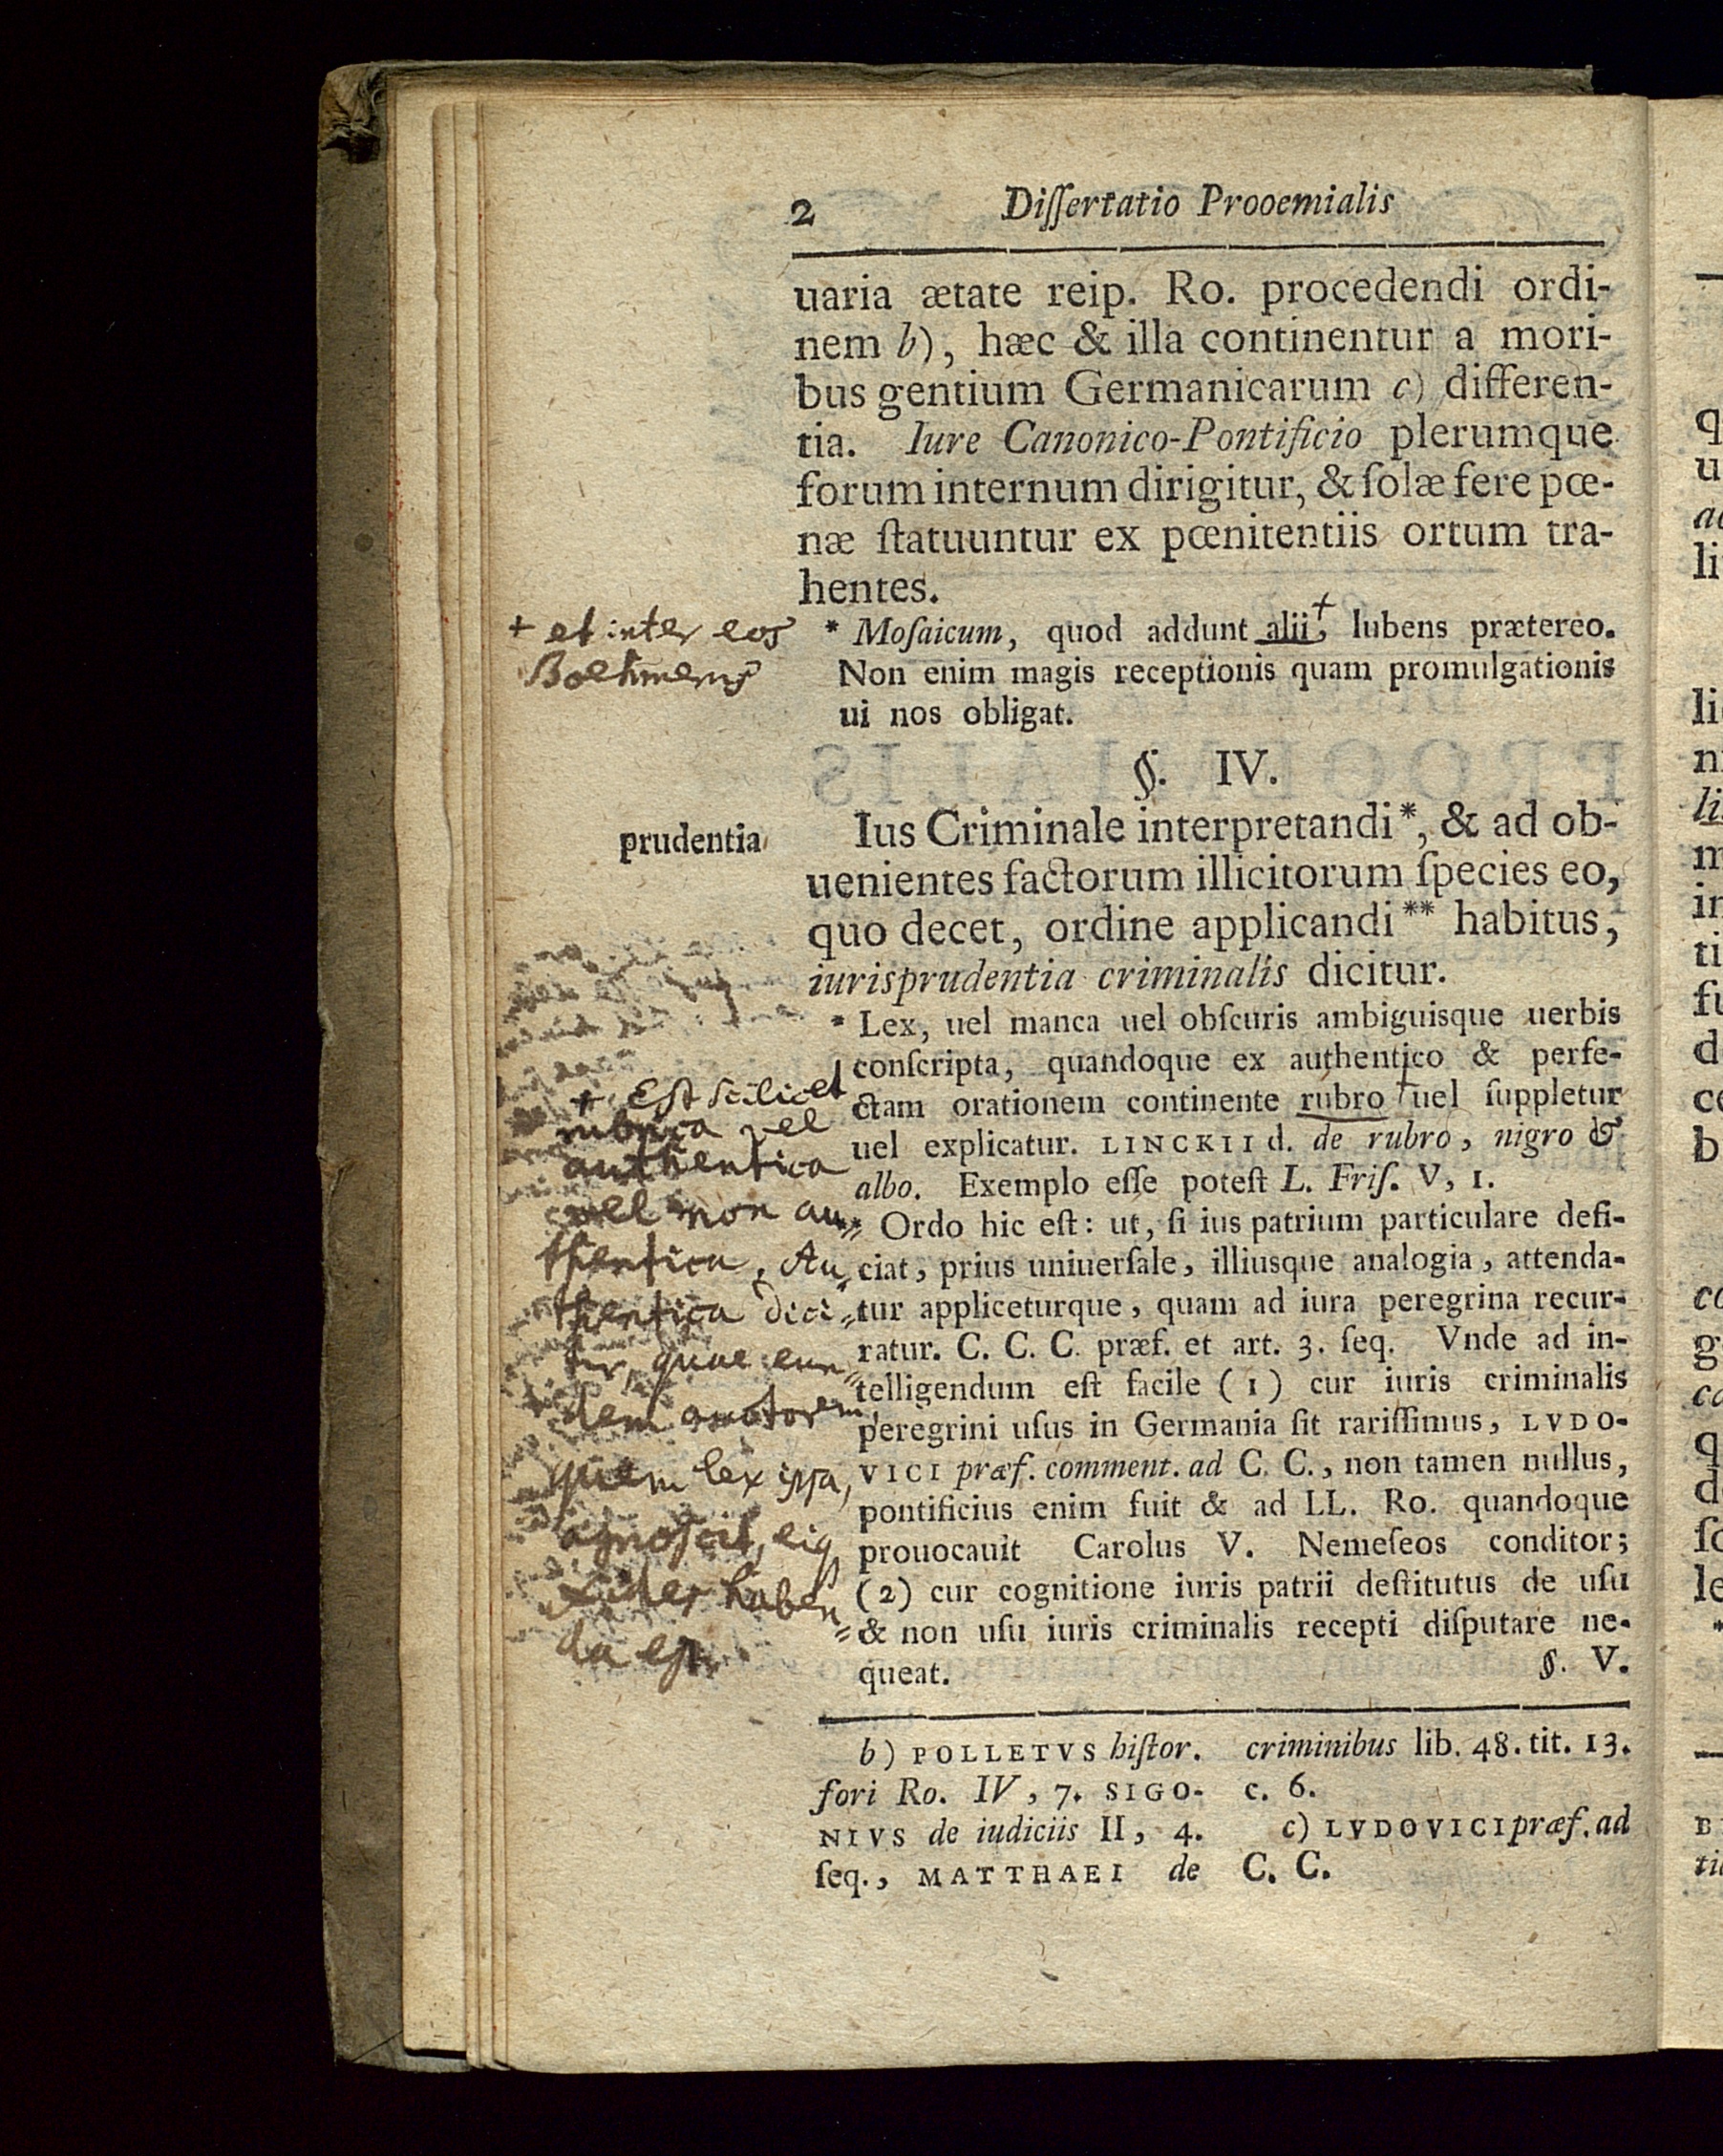 2 Diſſertatio Prooemialis
uaria ætate reip. Ro. procedendi ordi-
nem b), hæc & illa continentur a mori-
bus gentium Germanicarum c) differen-
tia. Iure Canonico-Pontificio plerumque
forum internum dirigitur, & ſolæ fere pœ-
næ ſtatuuntur ex pœnitentiis ortum tra-
hentes.
+ et inter eos
Boehmerus
* Moſaicum, quod addunt alii+, lubens prætereo.
Non enim magis receptionis quam promulgationis
ui nos obligat.
§. IV.
prudentia
Ius Criminale interpretandi*, & ad ob-
uenientes factorum illicitorum ſpecies eo,
quo decet, ordine applicandi** habitus,
iurisprudentia criminalis dicitur.
* Lex, uel manca uel obſcuris ambiguisque uerbis
conſcripta, quandoque ex authentico & perfe-
ctam orationem continente rubro + uel ſuppletur
uel explicatur. LINCKII d. de rubro, nigro &
albo. Exemplo eſſe poteſt L. Friſ. V, 1.
** Ordo hic eſt: ut, ſi ius patrium particulare defi-
ciat, prius uniuerſale, illiusque analogia, attenda-
tur appliceturque, quam ad iura peregrina recur-
ratur. C. C. C. præf. et art. 3. ſeq. Vnde ad in-
telligendum eſt facile (1) cur iuris criminalis
peregrini uſus in Germania ſit rariſſimus, LVDO-
VICI præf. comment. ad C. C., non tamen nullus,
pontificius enim fuit & ad LL. Ro. quandoque
prouocauit Carolus V. Nemeſeos conditor;
(2) cur cognitione iuris patrii deſtitutus de uſu
& non uſu iuris criminalis recepti diſputare ne-
queat.
§. V.
+ Est scilicet
rubrica vel
authentica
vel non au=
thentica. Au=
thentica dici=
tur, quae eun=
dem autorem,
quem lex ipsa,
agnoscit, eiq
fides haben=
da est.
b) POLLETVS hiſtor.
fori Ro. IV, 7. SIGO-
NIVS de iudiciis II, 4.
ſeq., MATTHAEI de
criminibus lib. 48. tit. 13.
c. 6.
c) LVDOVICI præf. ad
C. C.